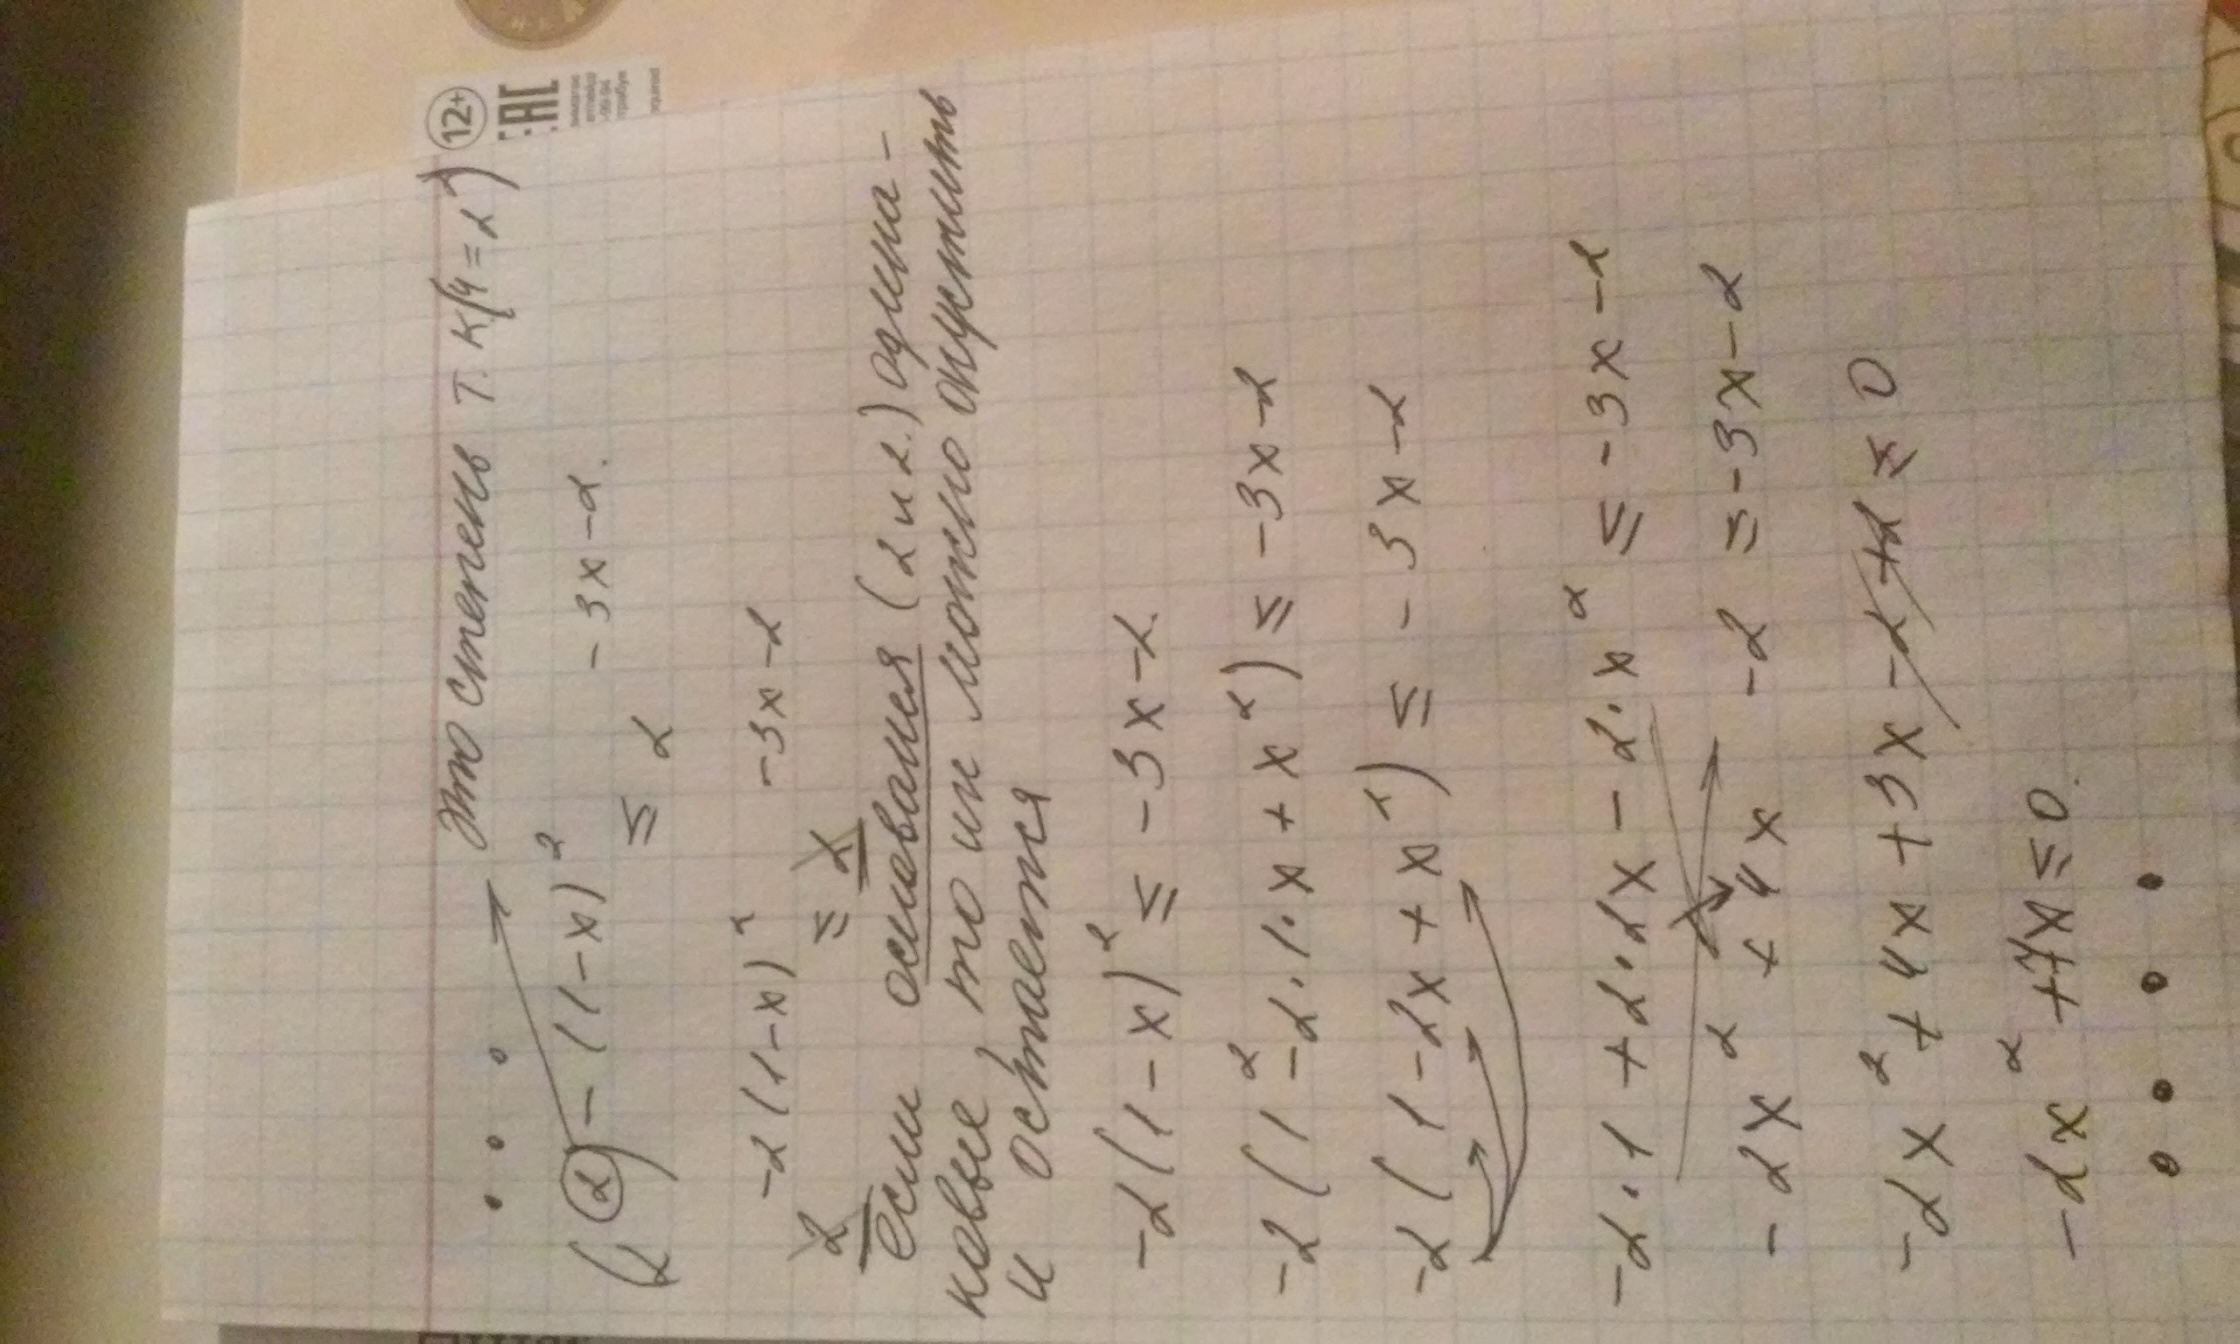 12+
ЕАС
это степень т. к (4 = 2²)
(2²)^-(1-x)² ≤ 2^-3x-2.
2^-2(1-x)² ≤ 2^-3x-2
если основания (2 и 2.) одина-
ковые, то их можно опустить
и остаётся
-2(1-x)² ≤ -3x-2.
-2(1² -2·1·x + x²) ≤ -3x-2
-2(1-2x+x²) ≤ -3x-2
-2·1 + 2·2x - 2·x² ≤ -3x-2
-2x² + 4x -2 ≤ -3x-2
-2x² + 4x + 3x -2 +2 ≤ 0
-2x² + 7x ≤ 0.